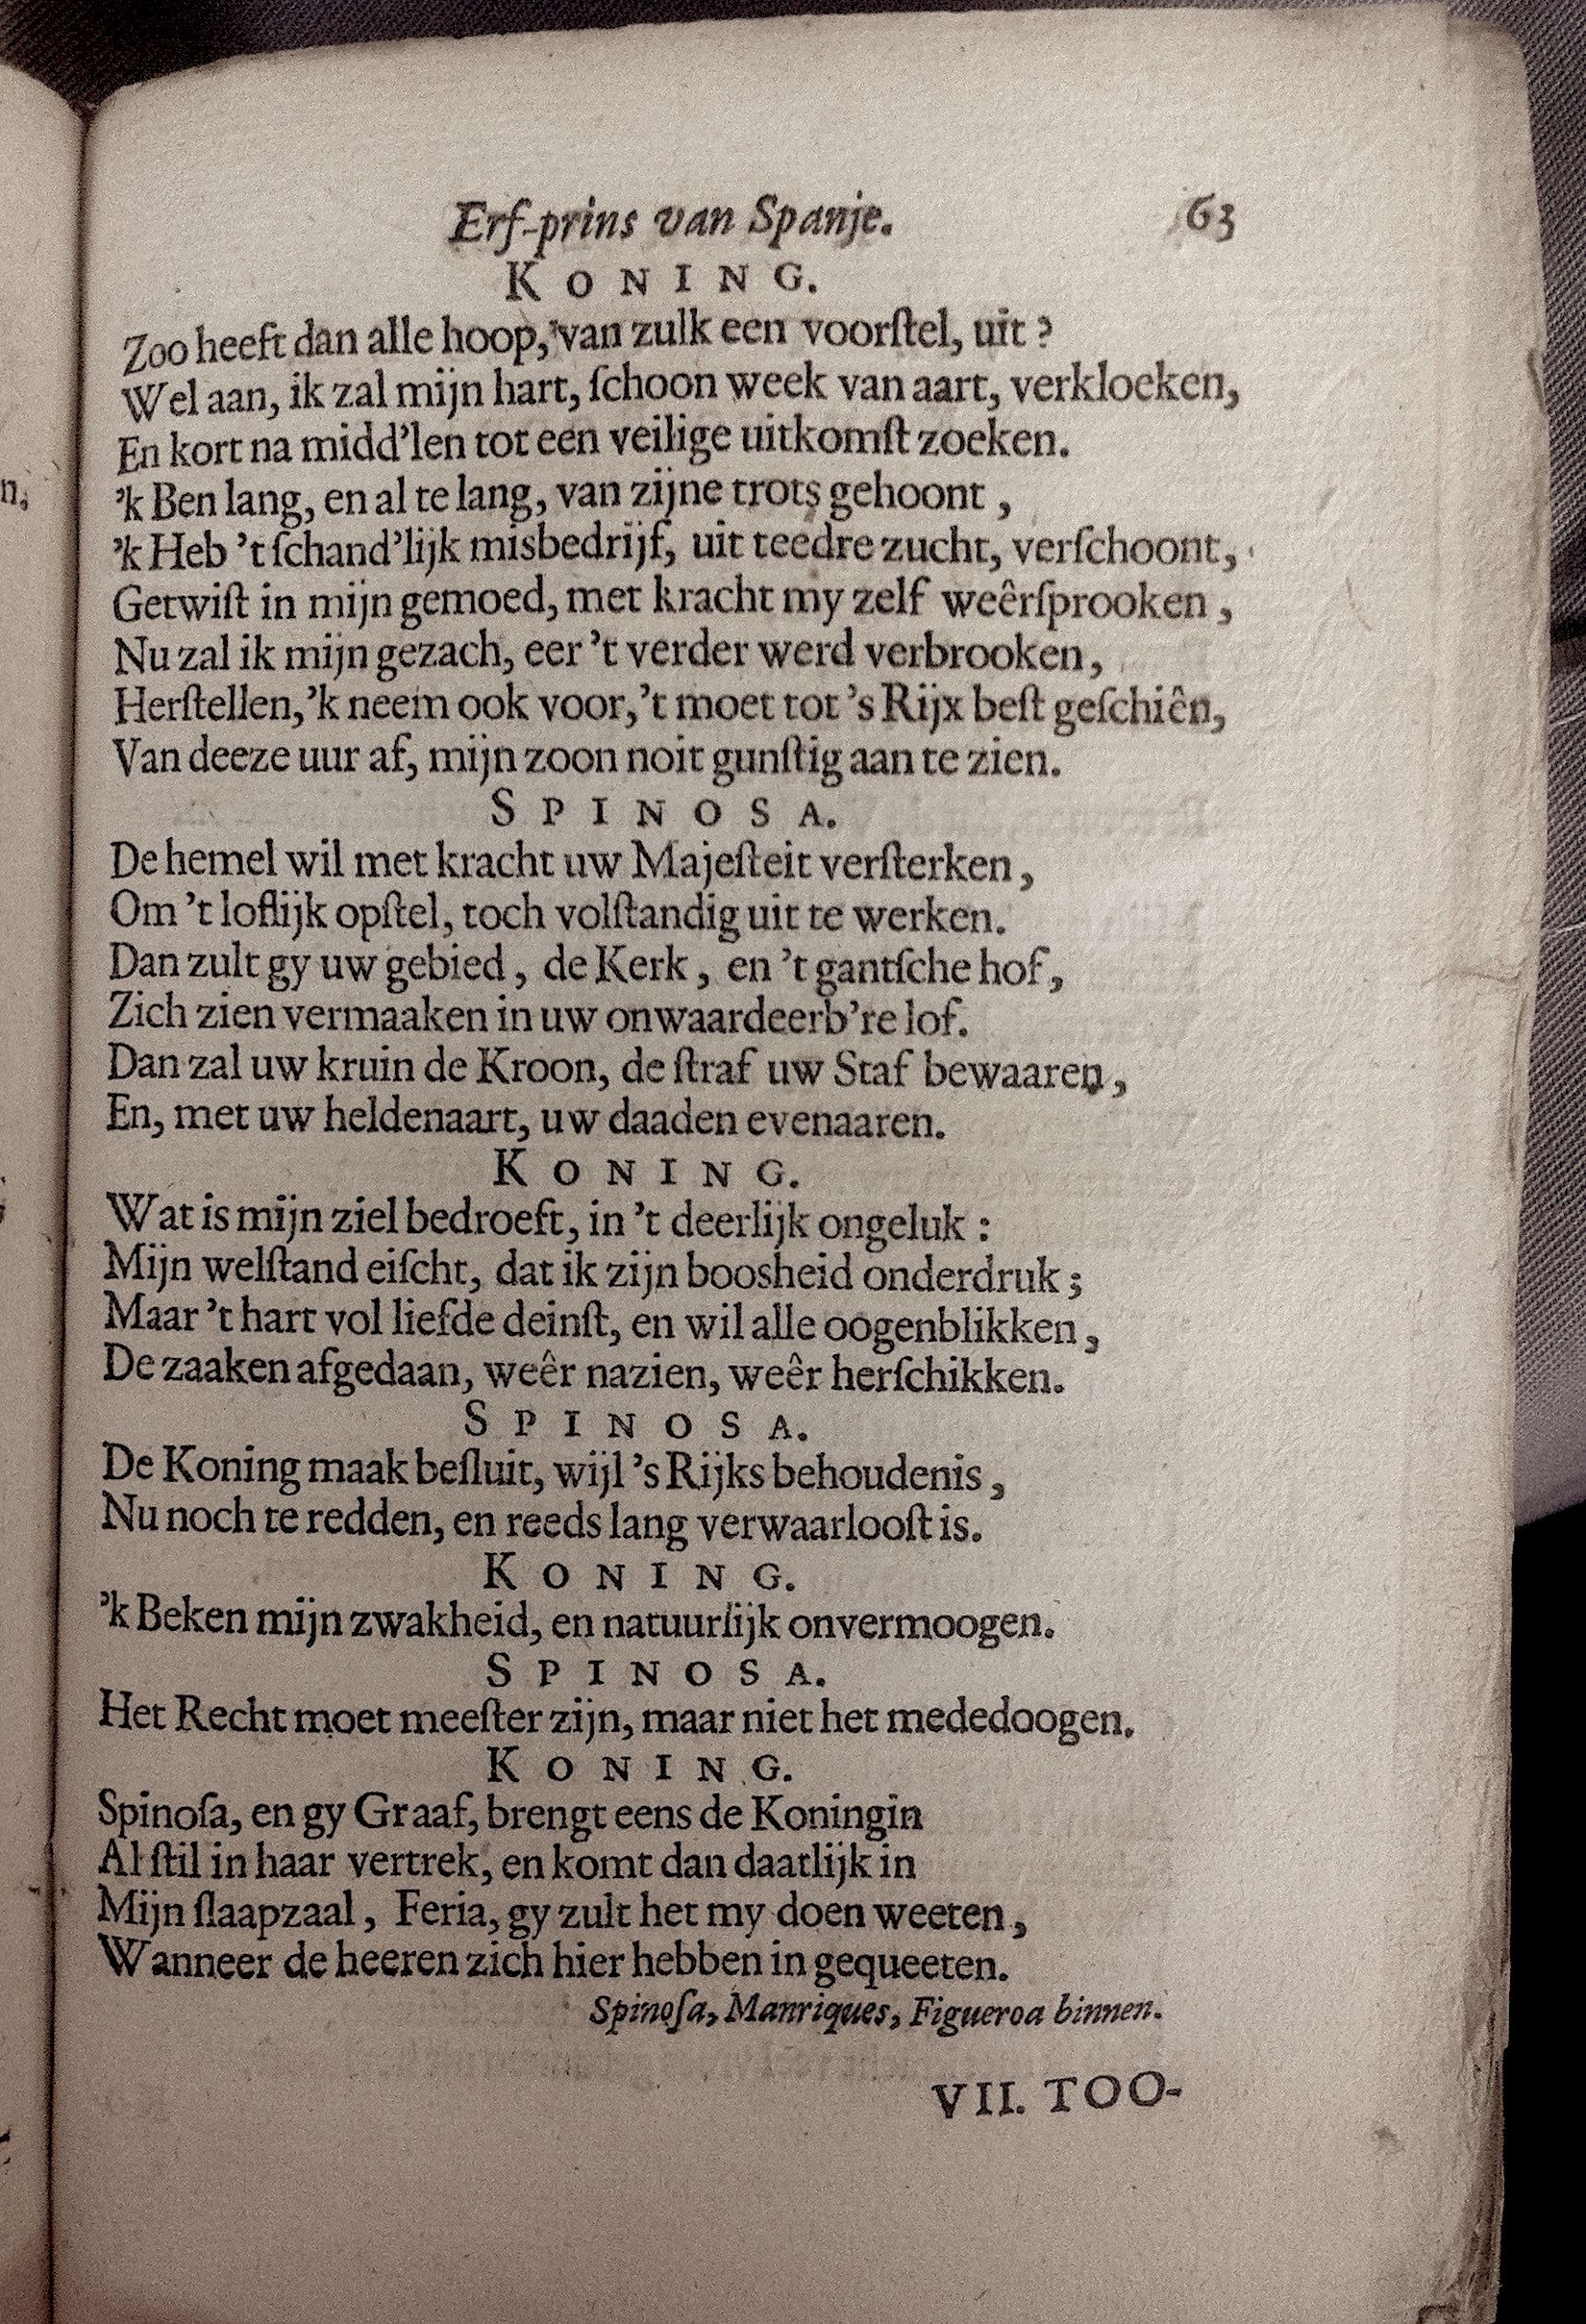 Erf-prins van Spanje. 63
KONING.
Zoo heeft dan alle hoop, van zulk een voorſtel, uit?
Wel aan, ik zal mijn hart, ſchoon week van aart, verkloeken,
En kort na midd’len tot een veilige uitkomſt zoeken.
’k Ben lang, en al te lang, van zijne trots gehoont,
’k Heb ’t ſchand’lijk misbedrijf, uit teedre zucht, verſchoont,
Getwiſt in mijn gemoed, met kracht my zelf weêrſprooken,
Nu zal ik mijn gezach, eer ’t verder werd verbrooken,
Herſtellen, ’k neem ook voor, ’t moet tot ’s Rijx beſt geſchiên,
Van deeze uur af, mijn zoon noit gunſtig aan te zien.
SPINOSA.
De hemel wil met kracht uw Majeſteit verſterken,
Om ’t loflijk opſtel, toch volſtandig uit te werken.
Dan zult gy uw gebied, de Kerk, en ’t gantſche hof,
Zich zien vermaaken in uw onwaardeerb’re lof.
Dan zal uw kruin de Kroon, de ſtraf uw Staf bewaaren,
En, met uw heldenaart, uw daaden evenaaren.
KONING.
Wat is mijn ziel bedroeft, in ’t deerlijk ongeluk:
Mijn welſtand eiſcht, dat ik zijn boosheid onderdruk;
Maar ’t hart vol liefde deinſt, en wil alle oogenblikken,
De zaaken afgedaan, weêr nazien, weêr herſchikken.
SPINOSA.
De Koning maak beſluit, wijl ’s Rijks behoudenis,
Nu noch te redden, en reeds lang verwaarlooſt is.
KONING.
’k Beken mijn zwakheid, en natuurlijk onvermoogen.
SPINOSA.
Het Recht moet meeſter zijn, maar niet het mededoogen.
KONING.
Spinoſa, en gy Graaf, brengt eens de Koningin
Al ſtil in haar vertrek, en komt dan daatlijk in
Mijn ſlaapzaal, Feria, gy zult het my doen weeten,
Wanneer de heeren zich hier hebben in gequeeten.
Spinoſa, Manriques, Figueroa binnen.
VII. TOO-